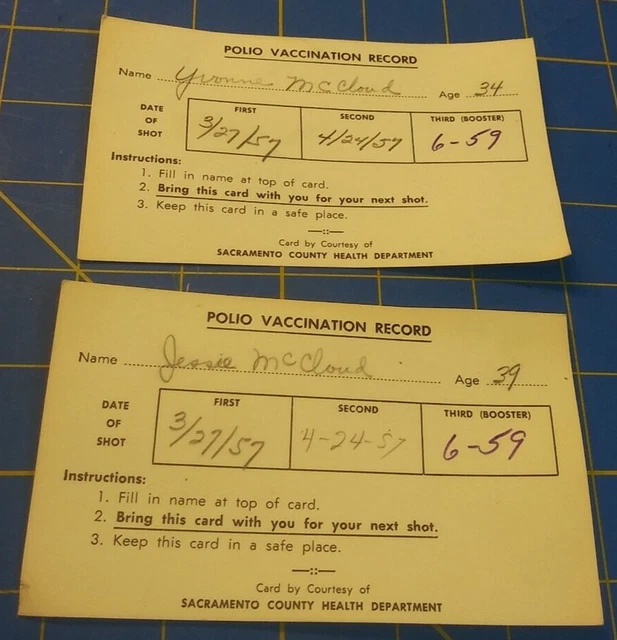 POLIO VACCINATION RECORD
Name Yvonne McCloud Age 34
DATE OF SHOT
FIRST SECOND THIRD (BOOSTER)
3/27/57 4/24/57 6-59
Instructions:
1. Fill in name at top of card.
2. Bring this card with you for your next shot.
3. Keep this card in a safe place.
Card by Courtesy of
SACRAMENTO COUNTY HEALTH DEPARTMENT
POLIO VACCINATION RECORD
Name Jessie McCloud Age 39
DATE OF SHOT
FIRST SECOND THIRD (BOOSTER)
3/27/57 4-24-57 6-59
Instructions:
1. Fill in name at top of card.
2. Bring this card with you for your next shot.
3. Keep this card in a safe place.
Card by Courtesy of
SACRAMENTO COUNTY HEALTH DEPARTMENT